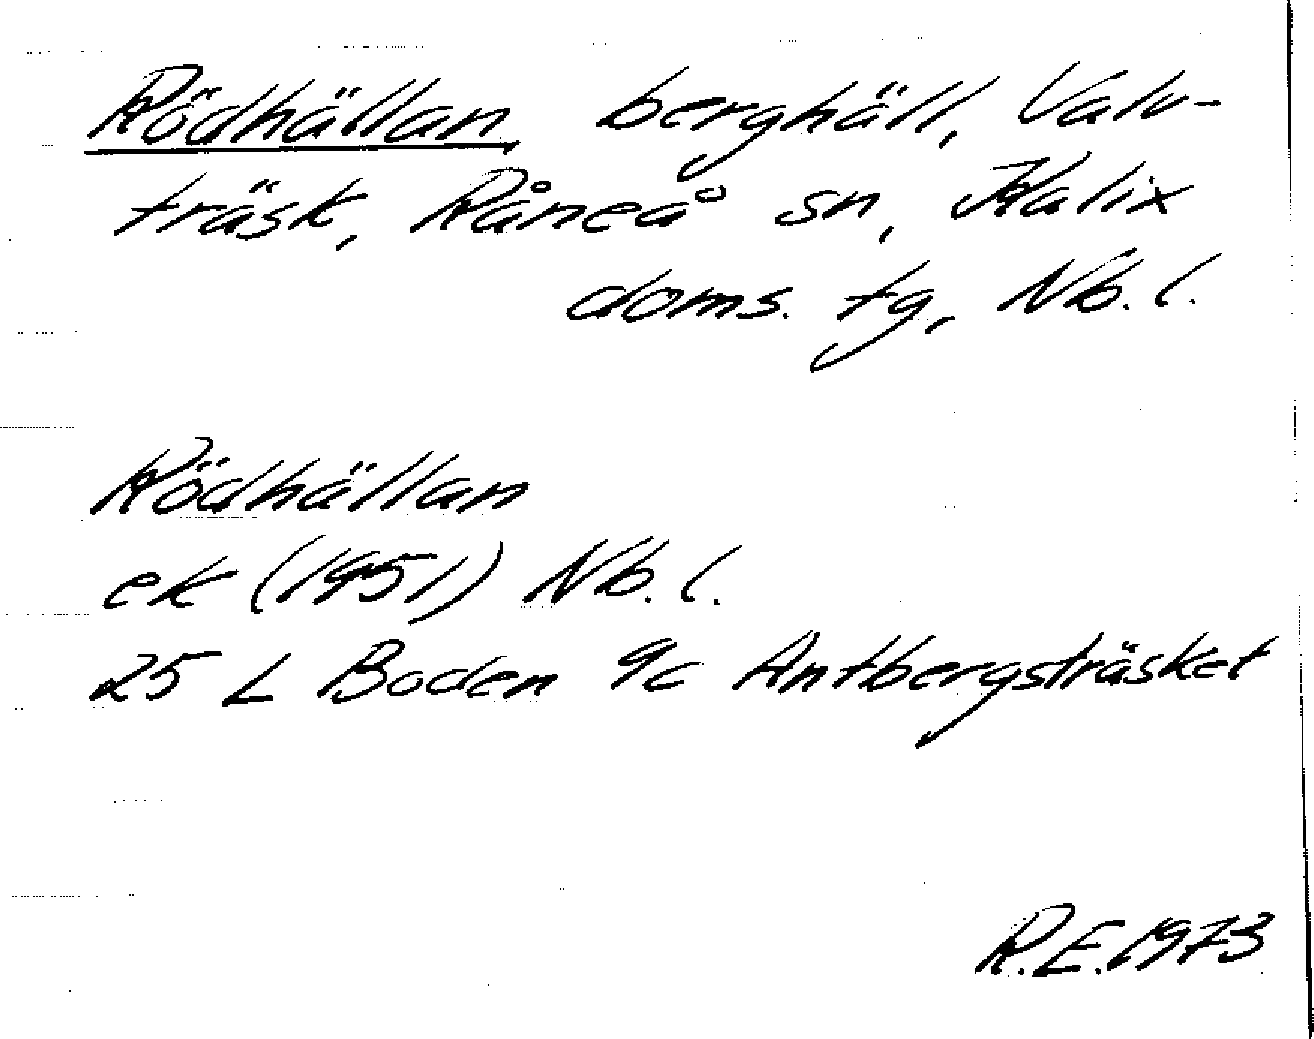 Rödhällan, berghäll, Valv-
träsk, Råneå sn, Kalix
doms. tg, Nb. l.
Rödhällan
ek (1951) Nb. l.
25 L Boden 9c Antbergsträsket
R.E. 1973